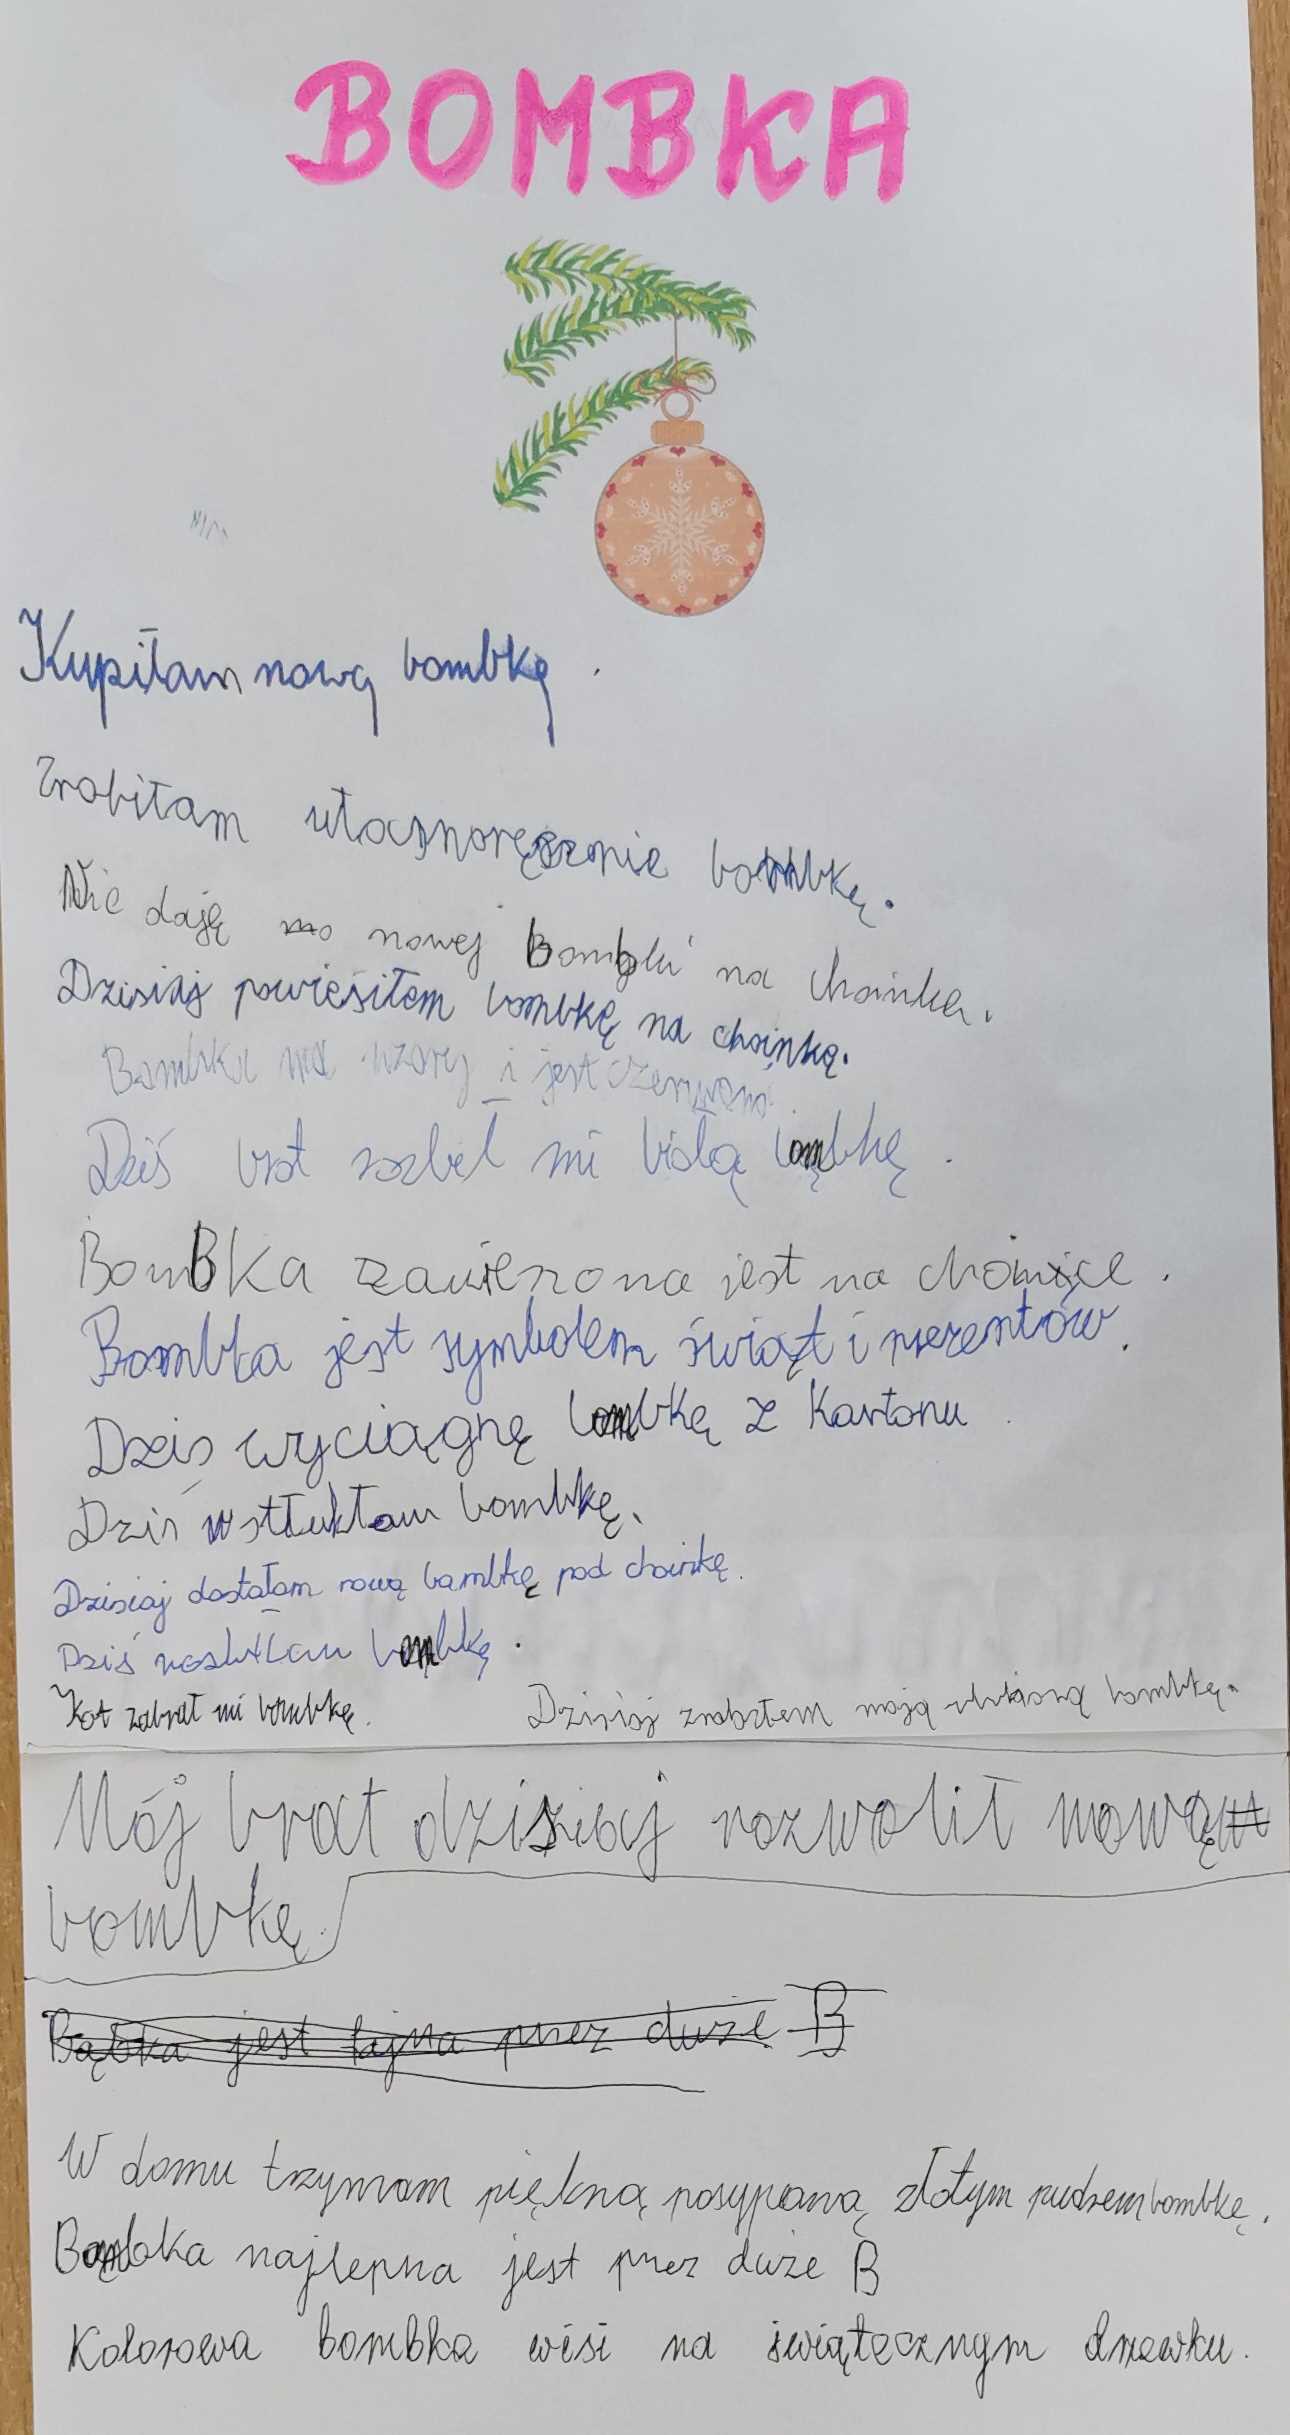 BOMBKA
Kupiłam nową bombkę.
Zrobiłam własnoręcznie bombkę.
Nie daję nowej Bombki na choinkę.
Dzisiaj powiesiłem bombkę na choinkę.
Bombka ma wzory i jest czerwona.
Dziś brat rozbił mi białą bombkę.
BomBKa zawieszona jest na choince.
Bombka jest symbolem świąt i prezentów.
Dziś wyciągnę bombkę z kartonu.
Dziś wstłukłam bombkę.
Dzisiaj dostałam nową bombkę pod choinkę.
Dziś rozbiłam bombkę.
Kot zabrał mi bombkę. Dzisiaj zrobiłem moją własną bombkę.
Mój brat dzisiaj rozwolił nową
bombkę.
Bąbka jest fajna przez duże B
W domu trzymam piękną posypaną złotym pudrem bombkę.
Bombka najlepsza jest przez duże B
Kolorowa bombka wisi na świątecznym drzewku.